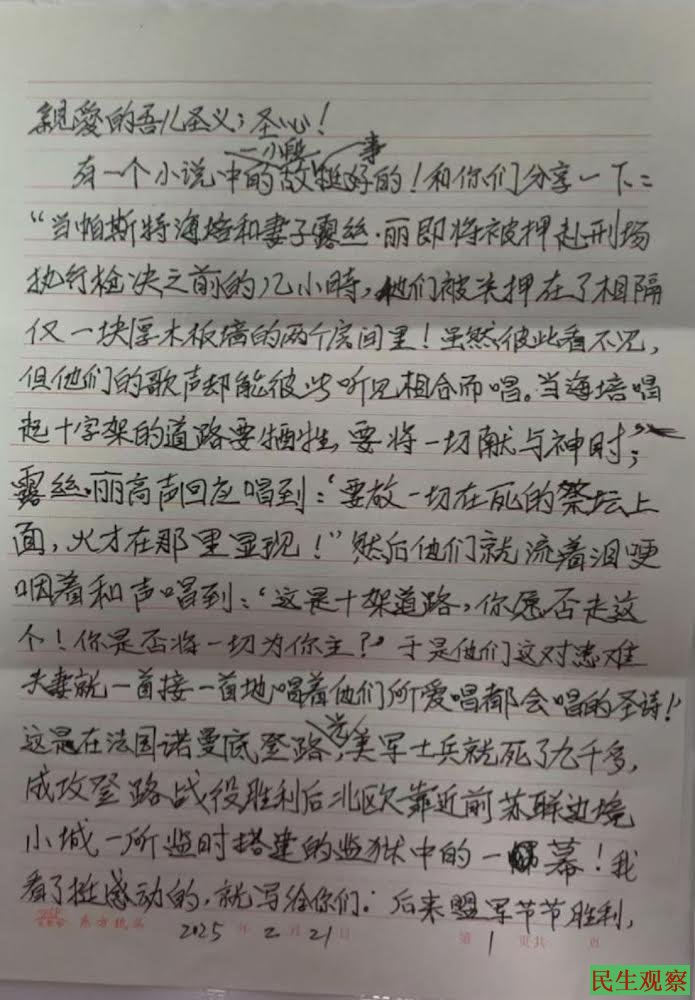 親愛的吾儿圣义；圣心！
一小段 事
有一个小说中的故挺好的！和你们分享一下：
“当帕斯特海培和妻子露丝·丽即将被押赴刑场
执行枪决之前的几小時，他们被关押在了相隔
仅一块厚木板墙的两个房间里！虽然彼此看不见，
但他们的歌声却能彼此听见相合而唱。当海培唱
起十字架的道路要牺牲，要将一切献与神时”；
露丝·丽高声回应唱到：‘要放一切在死的祭坛上
面，火才在那里显现！”然后他们就流着泪哽
咽着和声唱到：‘这是十架道路，你愿否走这
个！你是否将一切为你主？’于是他们这对患难
夫妻就一首接一首地唱着他们所爱唱都会唱的圣诗！
这是在法国诺曼底登路，美军士兵就死了九千多，
成攻登路战役胜利后北欧靠近前苏联边境
小城一所监时搭建的监狱中的一幕！我
看了挺感动的，就写给你们：后来盟军节节胜利，
东方纸品 2025年2月21日 第1页共 页
民生观察